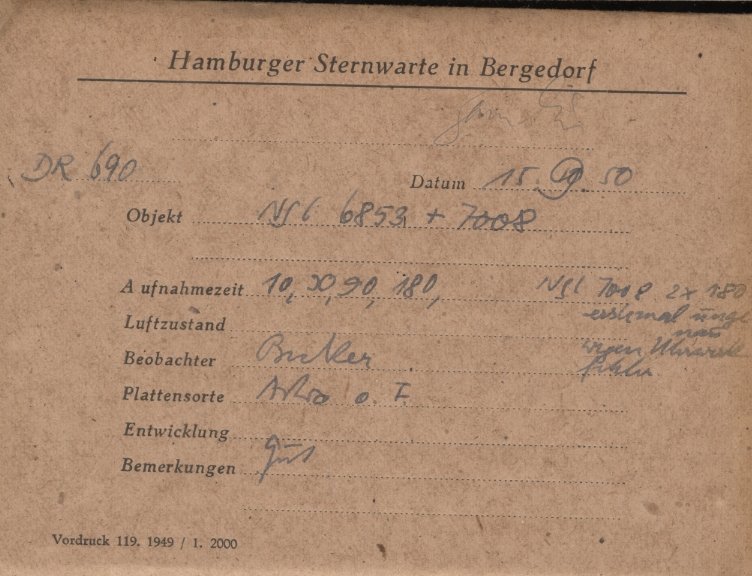 Hamburger Sternwarte in Bergedorf
DR 690
Datum 15. 9. 50
Objekt NGC 6853 + 7008
Aufnahmezeit 10, 30, 90, 180, NGC 7008 2x 180
Luftzustand erstemal unge
nau
Beobachter wegen Uhrwerk
Plattensorte Astro o. F.
Entwicklung
Bemerkungen Gut
Vordruck 119. 1949 / 1. 2000